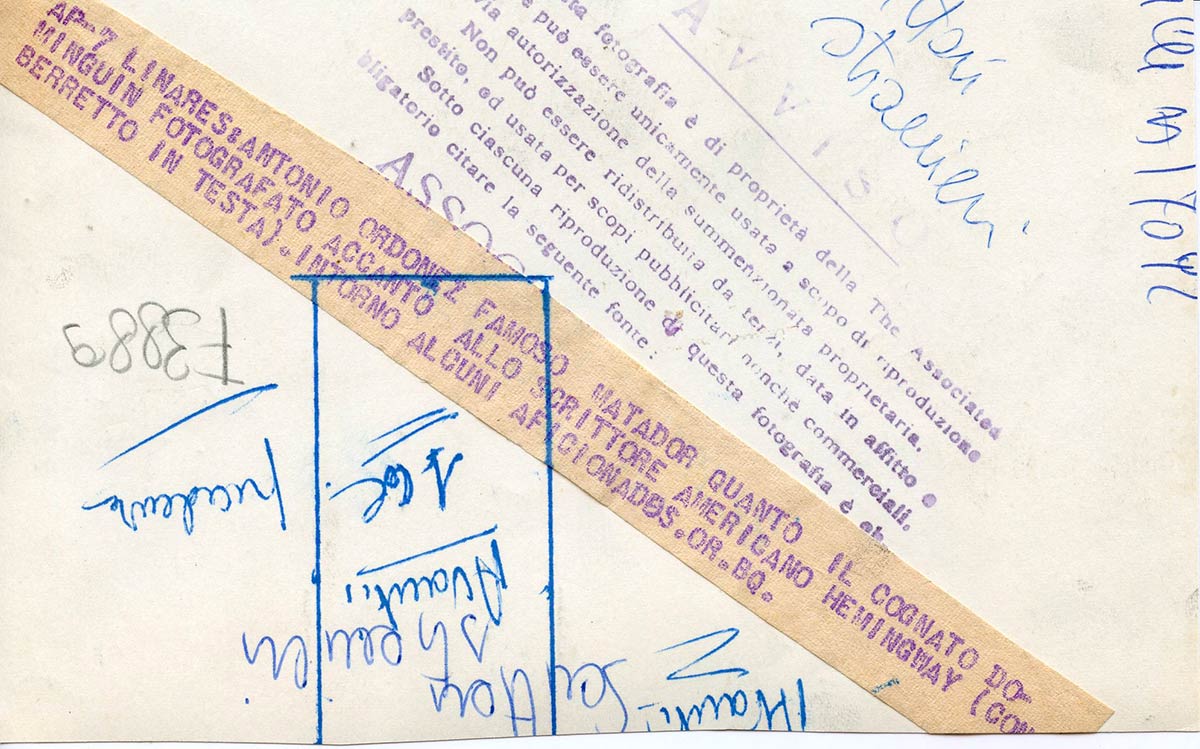 AP-7 LINARES:ANTONIO ORDONEZ FAMOSO MATADOR QUANTO IL COGNATO DO-
MINGUIN FOTOGRAFATO ACCANTO ALLO SCRITTORE AMERICANO HEMINGWAY (CON
BERRETTO IN TESTA).INTORNO ALCUNI AFICIONADOS.OR.BQ.
AVVISO
sta fotografia è di proprietà della The Associated
e può essere unicamente usata a scopo di riproduzione
via autorizzazione della summenzionata proprietaria.
Non può essere ridistribuita da terzi, data in affitto o
prestito, od usata per scopi pubblicitari nonché commerciali.
Sotto ciascuna riproduzione di questa fotografia è ob
bligatorio citare la seguente fonte :
ASSOC
stranieri
F3889
1 col.
Avanti!
scrittori
stranieri